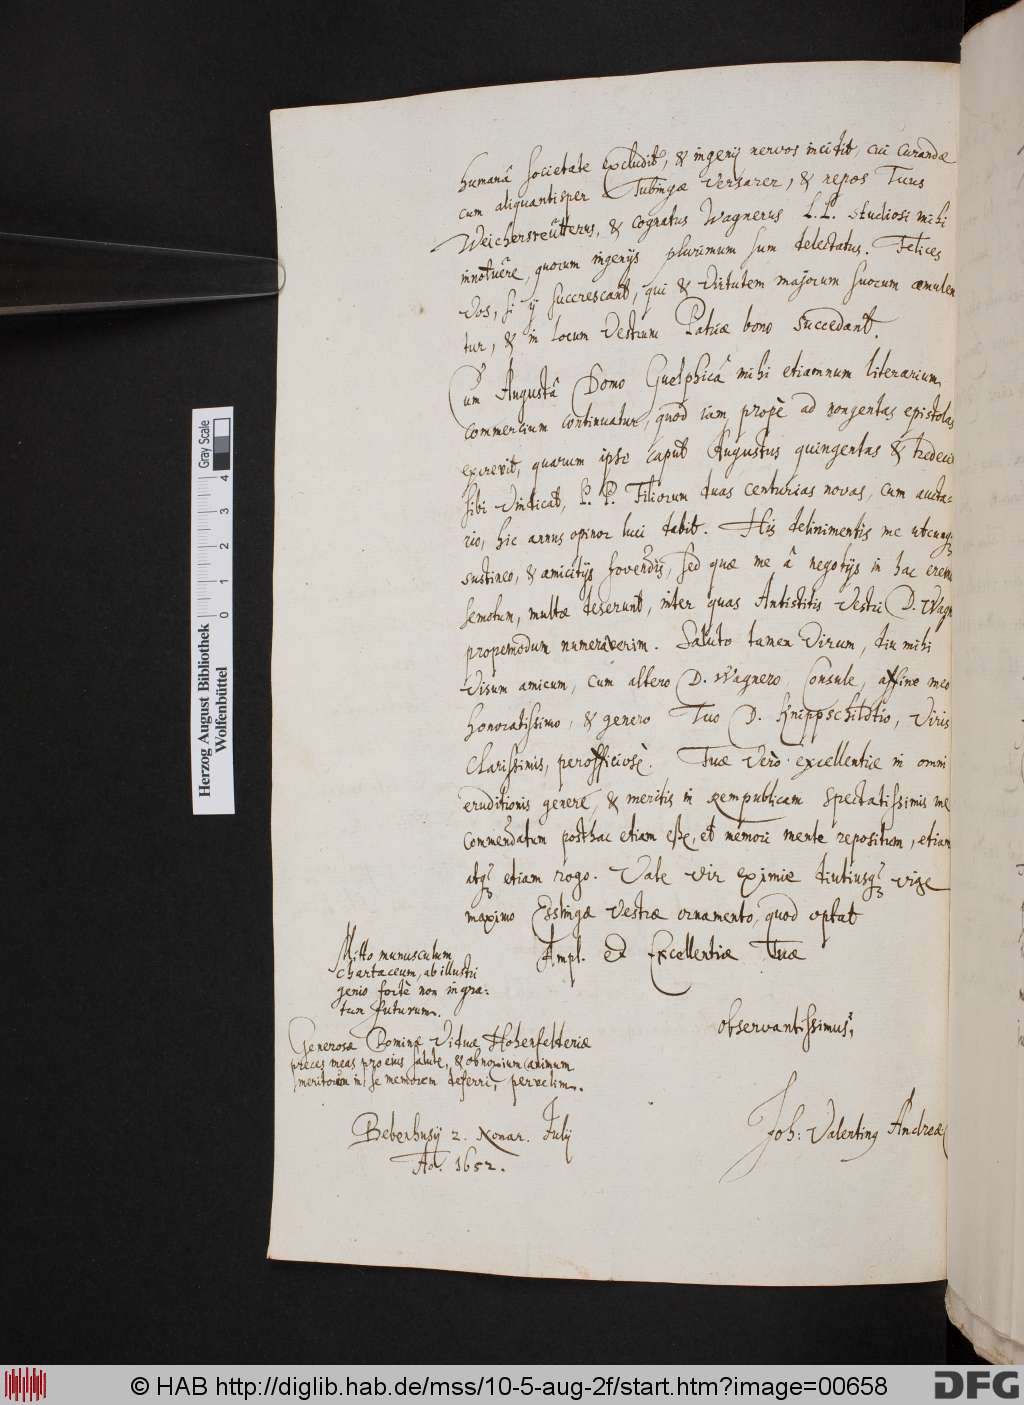 humanâ societate excludit, & ingenij nervos incidit, cui curandæ
cum aliquantisper Tubingæ versarer, & nepos Tuus
Weichersreütterus, & cognatus Wagnerus L.L. studiosi mihi
innotuêre, quorum ingenijs plurimum sum delectatus. Felices
Vos, si ij succrescant, qui & virtutem majorum suorum æmulen
tur, & in locum vestrum Patriæ bono succedant.
Cum Augustâ Domo Guelphicâ mihi etiamnum literarium
commercium continuatur, quod iam propè ad nongentas epistolas
excrevit, quarum ipse caput Augustus quingentas & tredecim
sibi vindicat, P. P. Filiorum duas centurias novas, cum aucta-
rio, hic annus opinor luci dabit. His delinimentis me utcunq;
sustineo, & amicitijs fovendis, sed quæ me â negotijs in hac eremo
semotum, multæ deserunt, inter quas Antistitis Vestri D. Wagn
propemodum numeraverim. Saluto tamen Virum, diu mihi
visum amicum, cum altero D. Wagnero Consule, affine meo
honoratissimo, & genero Tuo D. Knippschildtio, Viris
Clarissimis, perofficiosè. Tuæ verò excellentiæ in omni
eruditionis genere, & meritis in Rempublicam spectatissimis me
commendatum posthac etiam esse, et memori mente repositum, etiam
atq; etiam rogo. Vale vir eximie diutiusq; vige
maximo Esslingæ vestræ ornamento, quod optat
Ampl. et Excellentiæ Tuæ
observantissimus,
Mitto munusculum
chartaceum, ab illustri
genio fortè non ingra-
tum futurum.
Generosæ Dominæ Viduæ Hohenfelderiæ
preces meas pro eius salute, & obnoxium animum
meritorum in se memorem deferri, pervelim.
Joh: Valentinq Andreæ
Bebenhusij 2. Nonar. Julij
Ao. 1652.
Herzog August Bibliothek
Wolfenbüttel
0 1 2 3 4
Gray Scale
© HAB http://diglib.hab.de/mss/10-5-aug-2f/start.htm?image=00658
DFG